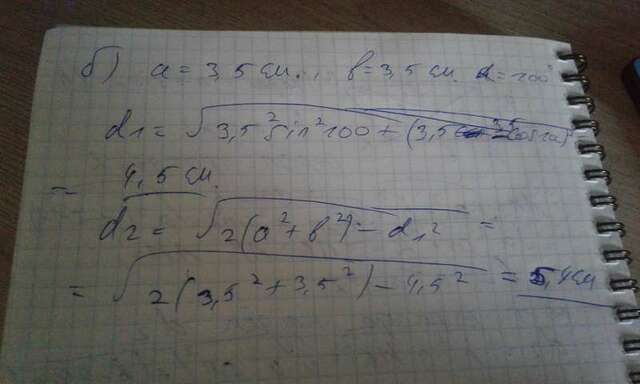 б) a = 3,5 см., b = 3,5 см. α = 100°
d₁ = √3,5² sin² 100 + (3,5
= 4,5 см.
d₂ = √2(a² + b²) - d₁² =
= √2(3,5² + 3,5²) - 4,5² = 5,4 см